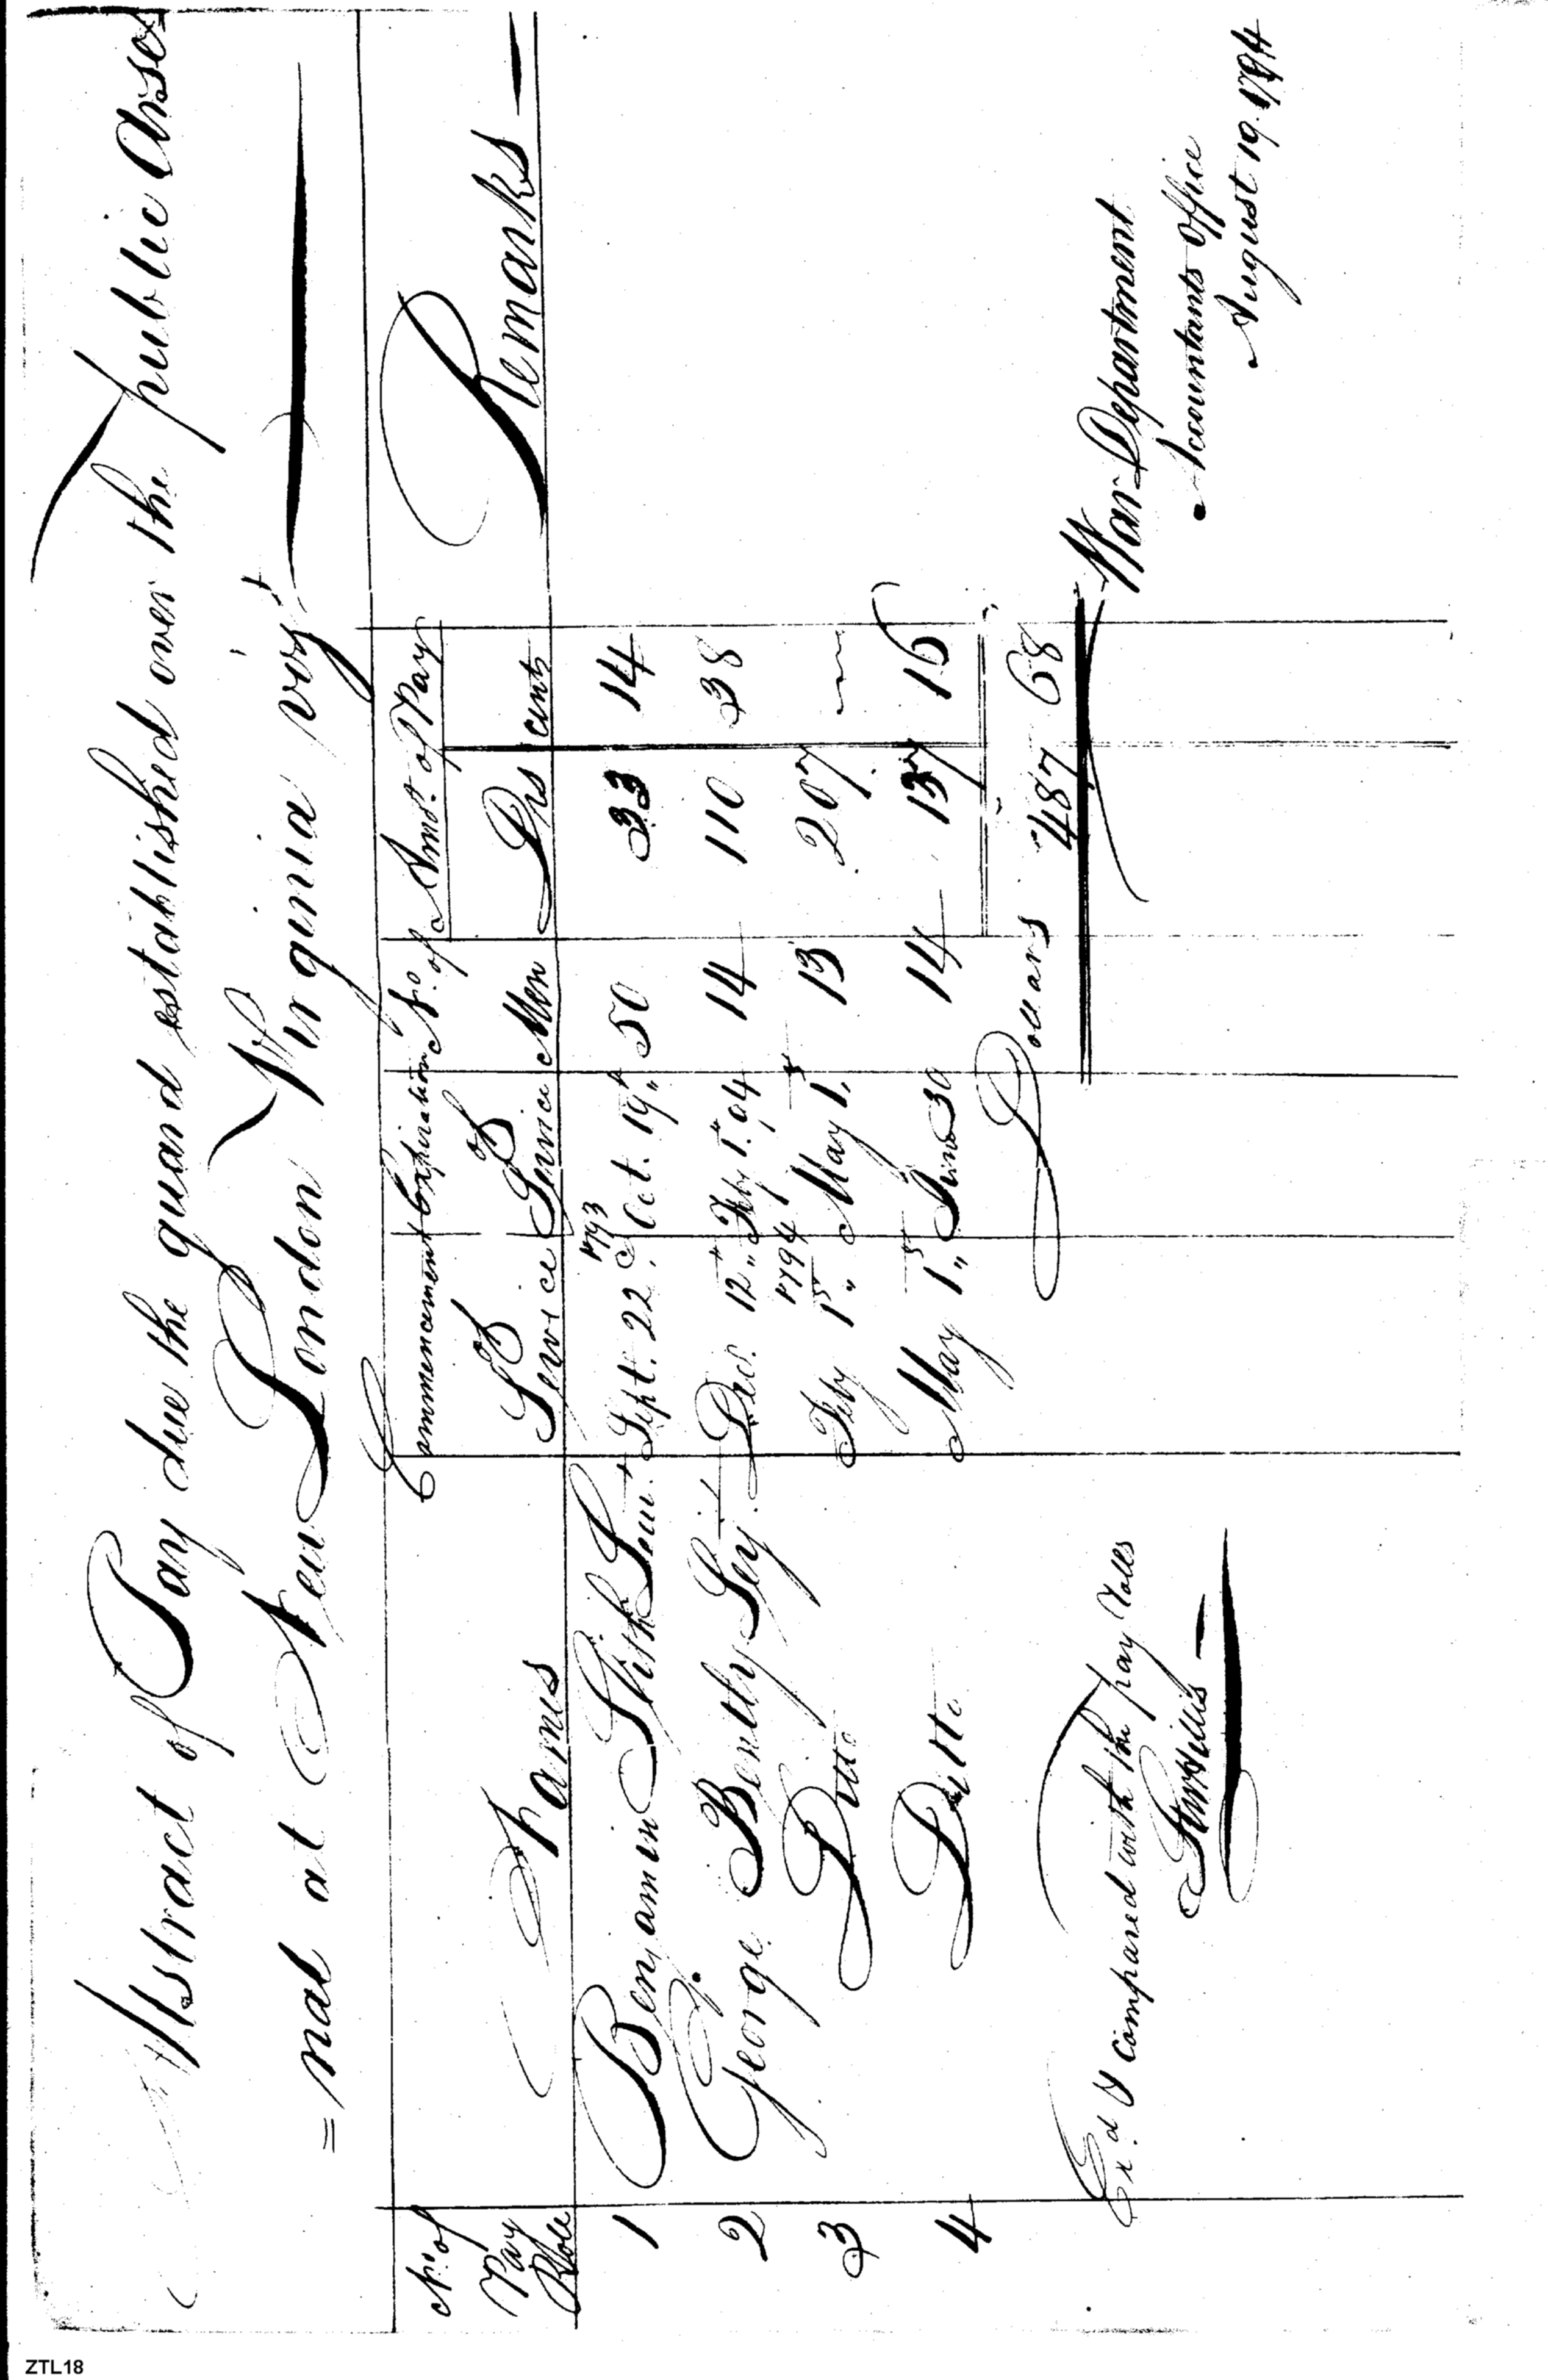 Abstract of Pay due the guard established over the public Arse
=nal at New London Virginia viz.t
No. of Pay Role | Names | Commencement of Service | Expiration of Service | No. of Men | Amot. of Pay Drs cents | Remarks
1 Benjamin Stith Sen.r Sept. 22.d 1793 Oct. 19.th 50 33 14
2 George Bently Serj.t Decr. 12.th Feby 1.st 94 14 110 38
3 Ditto Feby 1st 1794 May 1.st 13 207 —
4 Ditto May 1st June 30 14 137 16
Dollars 487 68
Ex.d & compared with the pay Rolls
War Department
Accountants Office
August 19. 1794
ZTL18